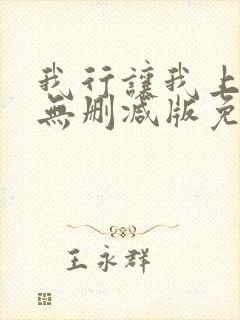 我行讓我上
無刪減版免
王永群